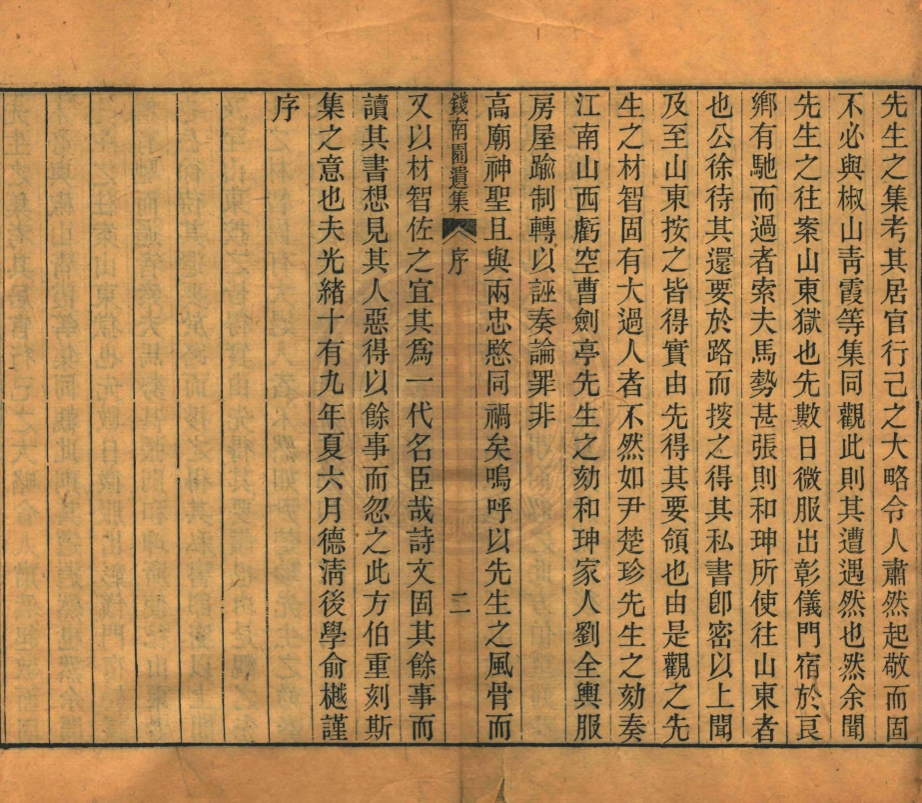 先生之集考其居官行己之大略令人肅然起敬而固
不必與椒山靑霞等集同觀此則其遭遇然也然余聞
先生之往案山東獄也先數日微服出彰儀門宿於良
鄉有馳而過者索夫馬勢甚張則和珅所使往山東者
也公徐待其還要於路而搜之得其私書卽密以上聞
及至山東按之皆得實由先得其要領也由是觀之先
生之材智固有大過人者不然如尹楚珍先生之劾奏
江南山西虧空曹劍亭先生之劾和珅家人劉全輿服
房屋踰制轉以誣奏論罪非
高廟神聖且與兩忠愍同禍矣嗚呼以先生之風骨而
錢南園遺集 序 二
又以材智佐之宜其爲一代名臣哉詩文固其餘事而
讀其書想見其人惡得以餘事而忽之此方伯重刻斯
集之意也夫光緒十有九年夏六月德淸後學俞樾謹
序